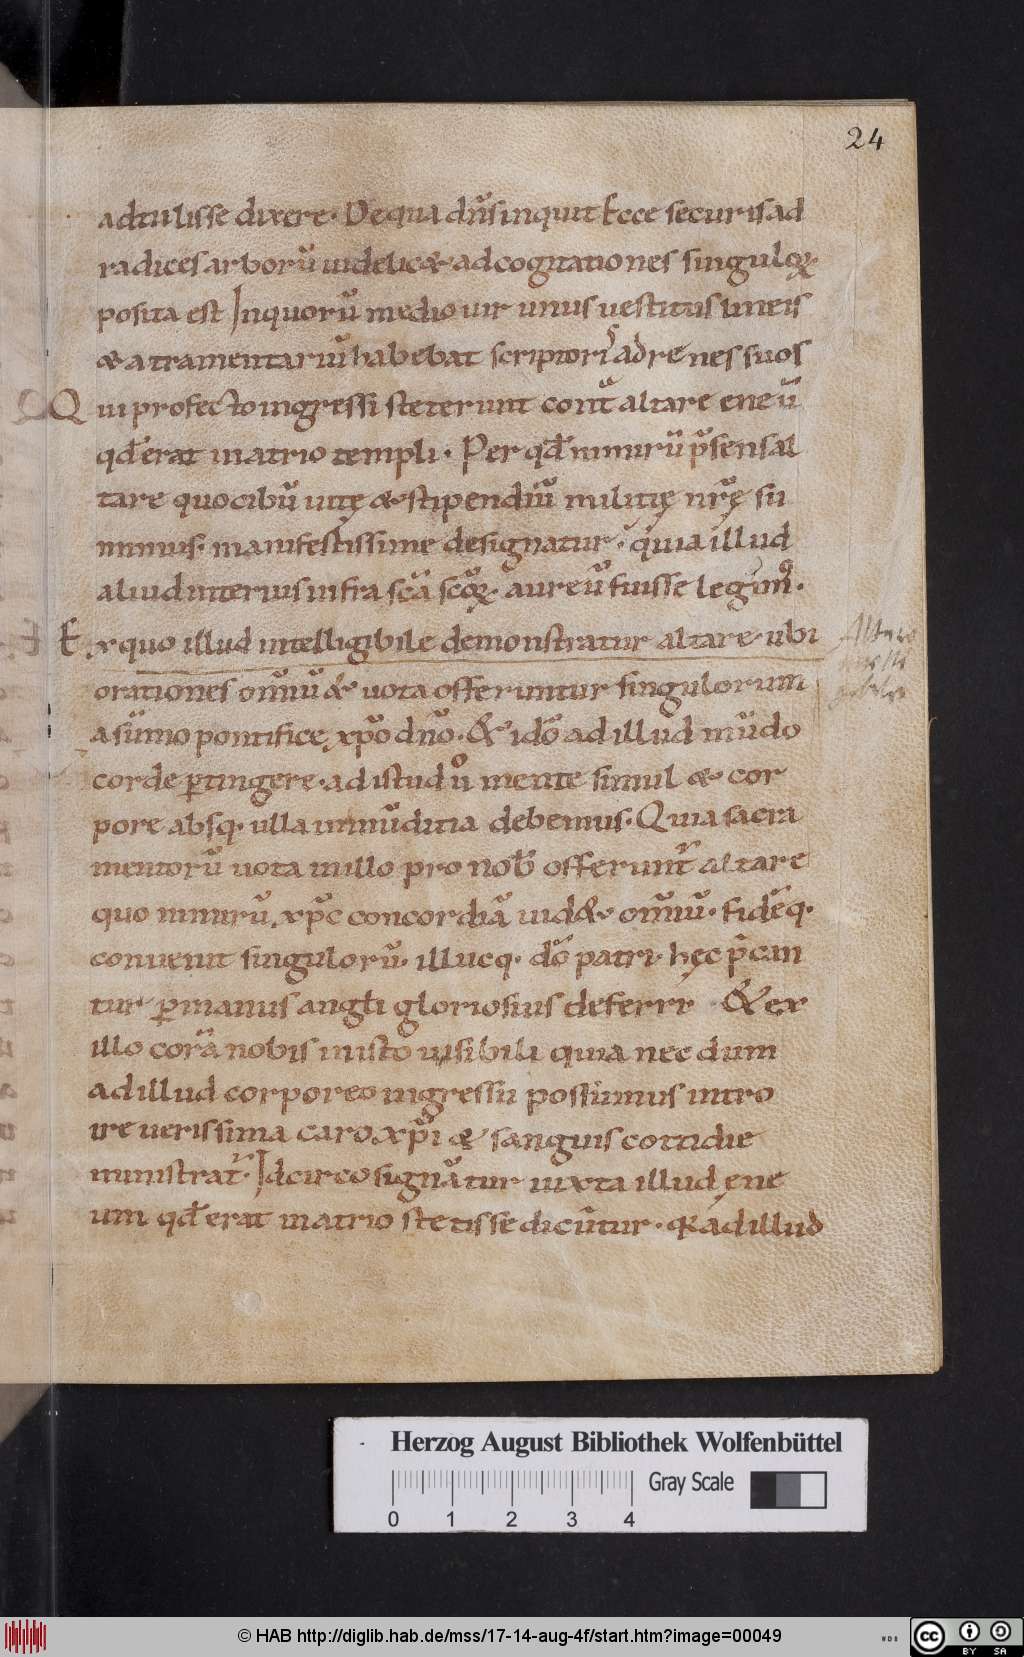 24
adtulisse dixere· De qua dn̄s inquit Ecce securis ad
radices arborū uidelic& ad cognationes singuloꝝ
posita est Inquorū medio uir unus uestitus lineis
& atramentariū habebat scriptoris ad renes suos
Qui profecto ingressi steterunt cont̄ altare eneū
qd̄ erat in atrio templi· Per qd̄ nimirū p̄sens al
tare quo cibū uitę & stipendiū militię nr̄ę su
mimus· manifestissime designatur· quia illud
aliud interius infra sc̄a sc̄oꝝ· aureū fuisse legim᷒·
Ex quo illud intelligibile demonstratur altare· ubi
orationes om̄iū & uota offeruntur singulorum
a sūmo pontifice xp̄o dn̄o· & idō ad illud mūdo
corde ꝑtingere· ad istud ů mente simul & cor
pore absq· ulla inmūditia debemus· Quia sacra
mentorū uota in illo pro nob̄ offerunt᷑ altare
quo nimirū xp̄c concordiā uid& om̄iū· fidēq·
conuenit singulorū· illucq· dō patri· hęc p̄can
tur ꝑ manus angłi gloriosius deferri &ex
illo corā nobis in isto uisibili quia necdum
ad illud corporeo ingressu possumus intro
ire uerissima caro xp̄i & sanguis cottidie
ministrat᷑· Idcirco signātur iuxta illud ęne
um qd̄ erat in atrio stetisse dicūtur· q̄a ad illud
Herzog August Bibliothek Wolfenbüttel
Gray Scale
0 1 2 3 4
© HAB http://diglib.hab.de/mss/17-14-aug-4f/start.htm?image=00049
cc BY SA